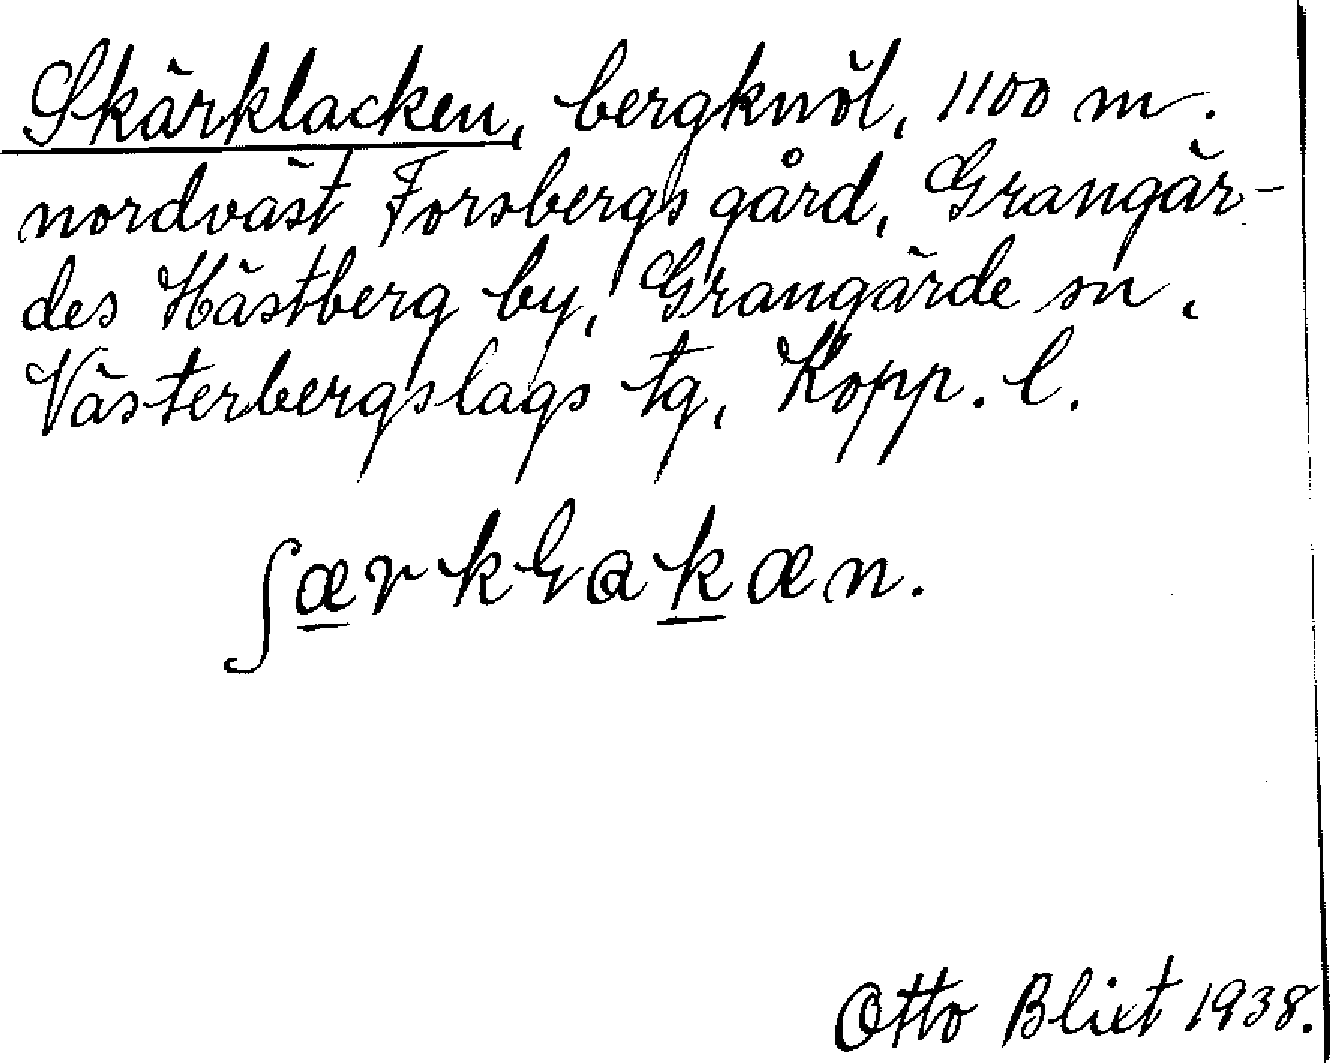 Skärklacken, bergknöl, 1100 m.
nordväst Forsbergs gård, Grangär-
des Hästberg by, Grangärde sn.
Västerbergslags tg, Kopp. l.
ʃærkɽakæn.
Otto Blixt 1938.